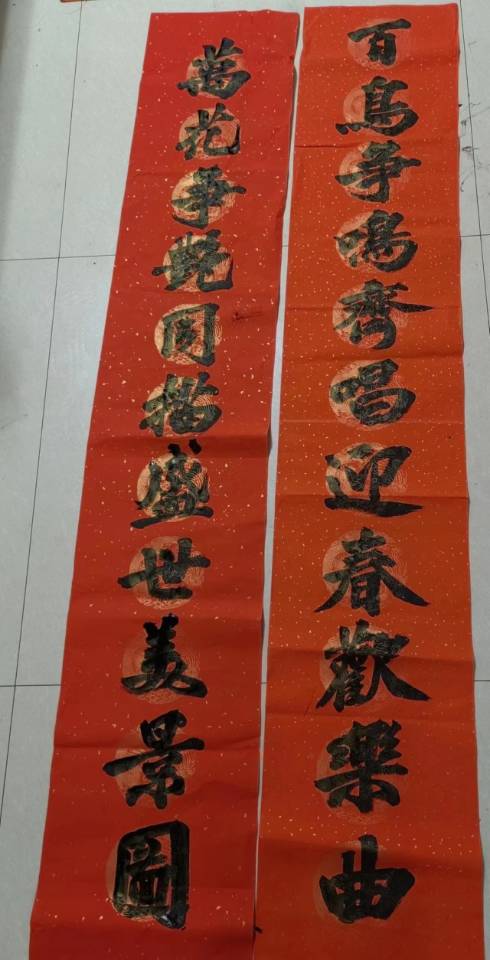 百鳥争鳴齊唱迎春歡樂曲
萬花争艷同描盛世美景圖